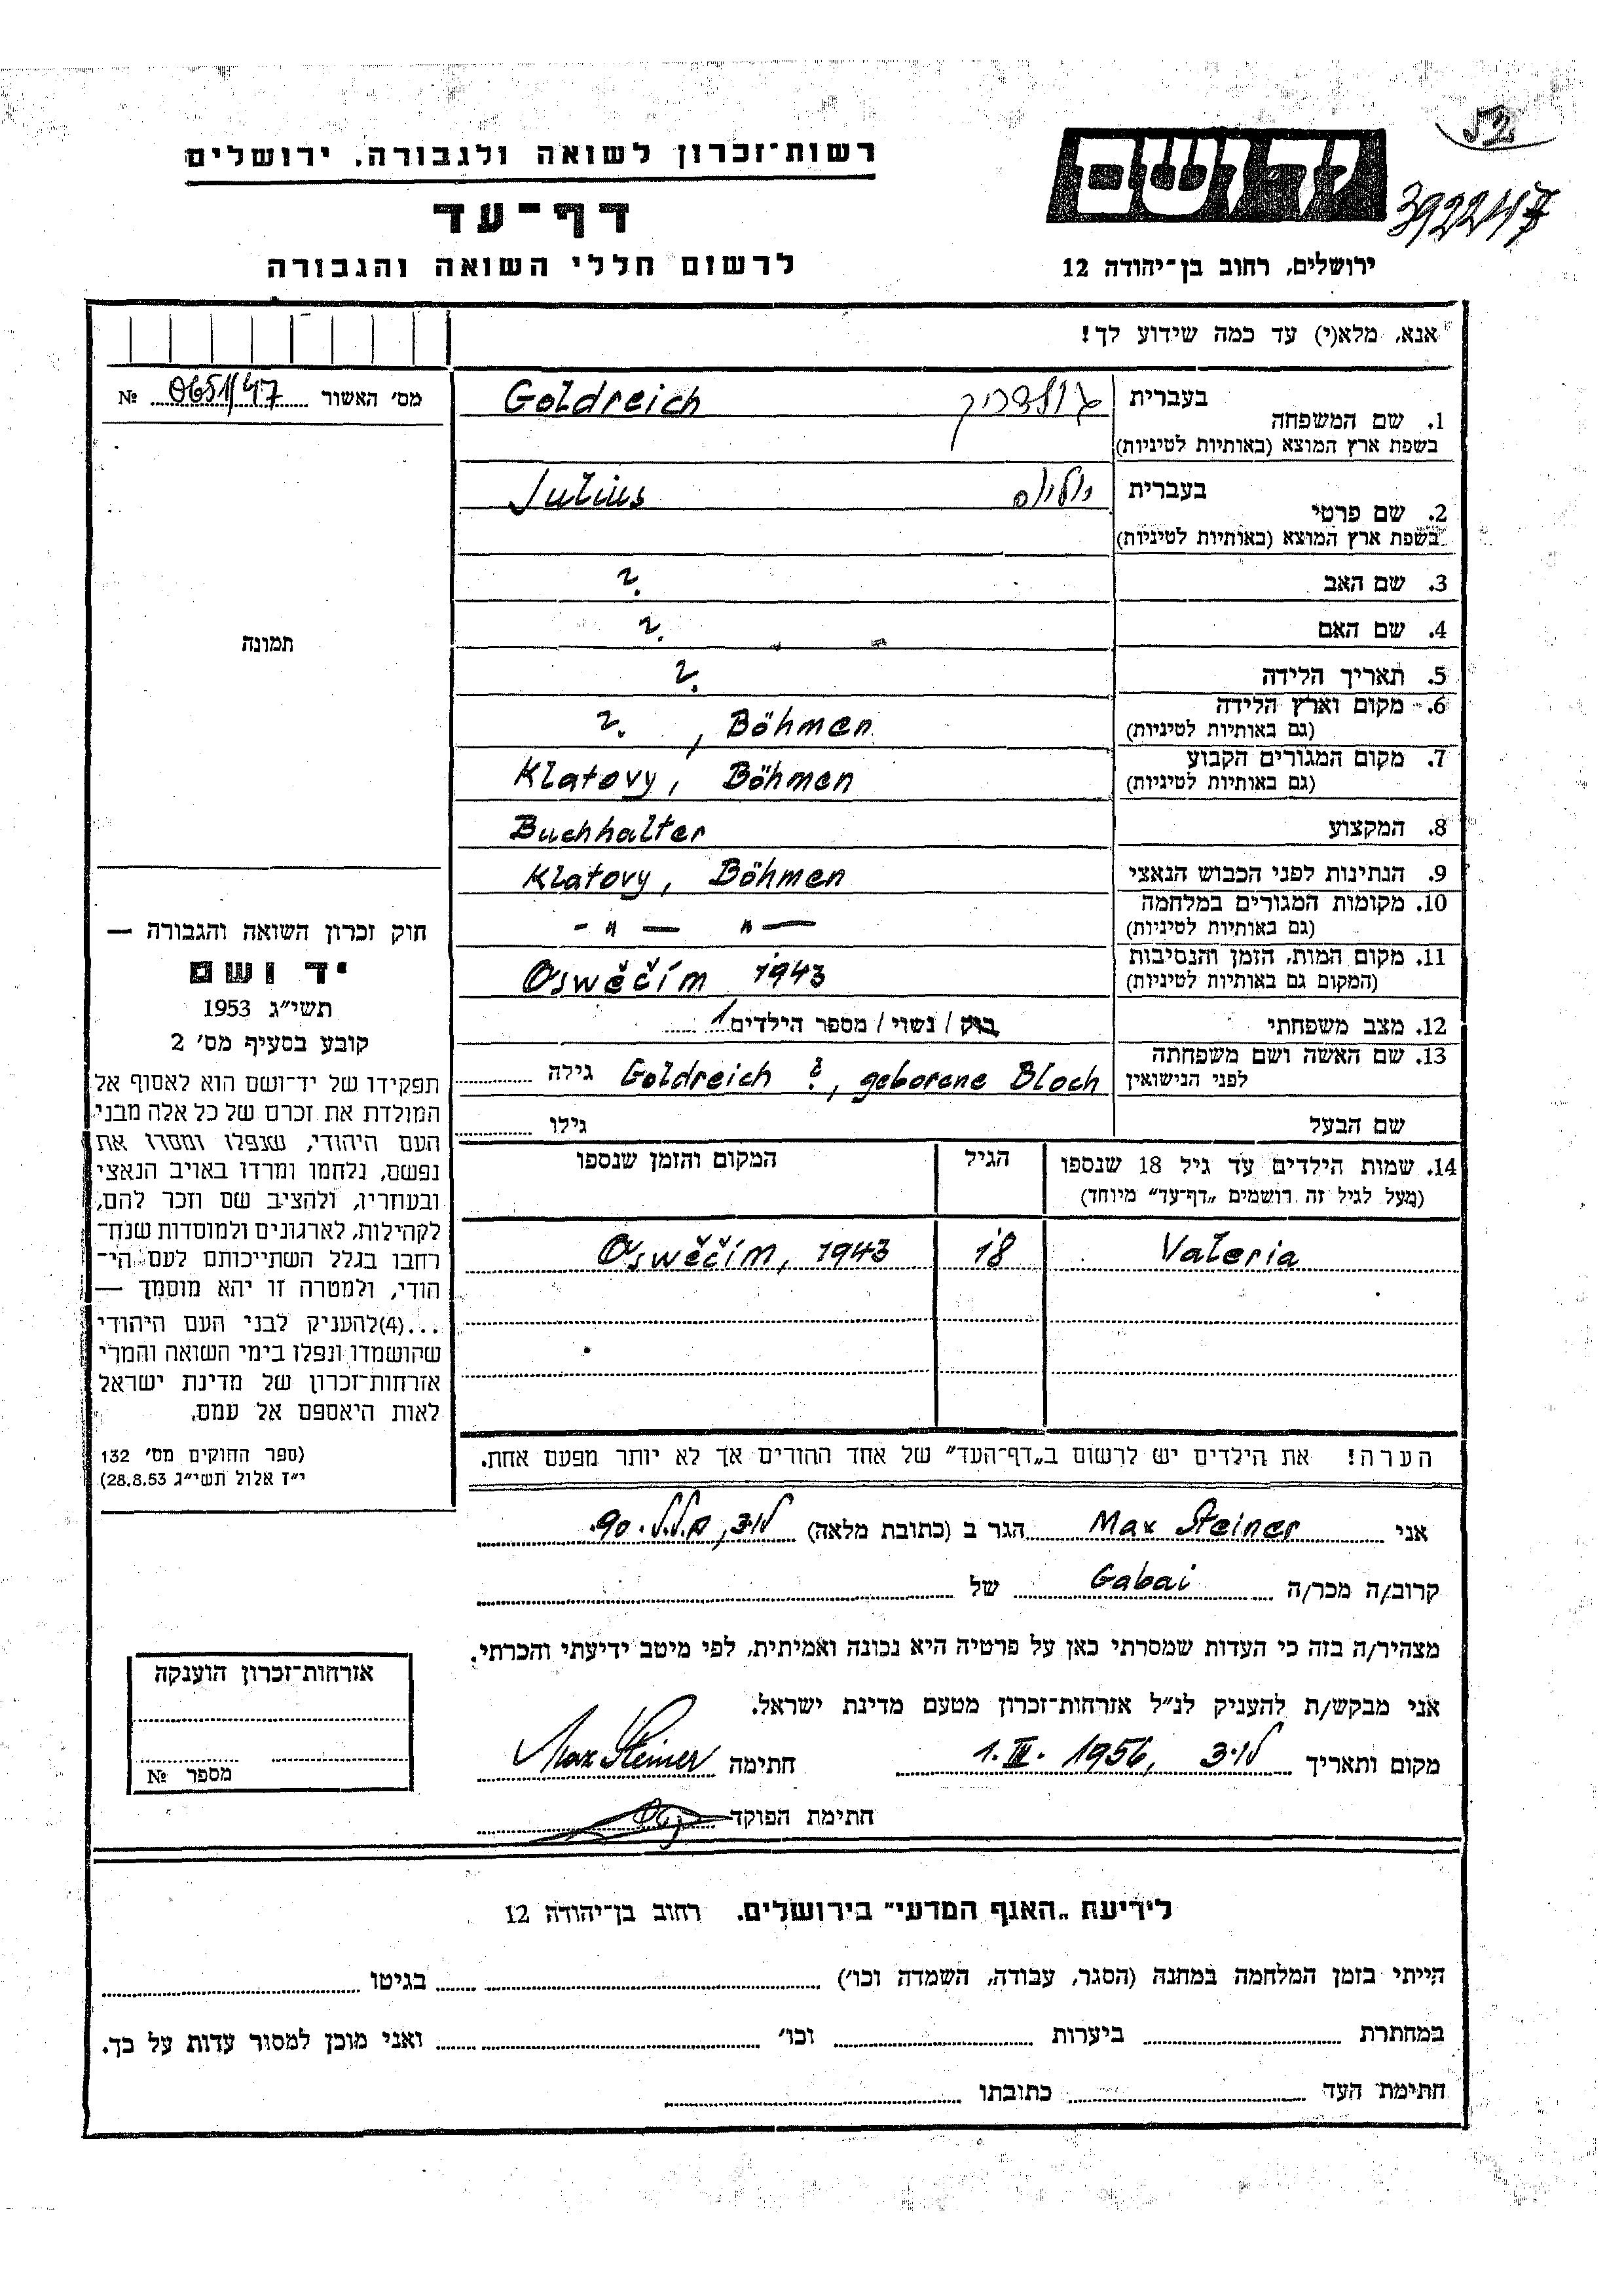 52
רשות־זכרון לשואה ולגבורה, ירושלים
יד ושם
392247
דף־עד
לרשום חללי השואה והגבורה
ירושלים, רחוב בן־יהודה 12
אנא, מלא(י) עד כמה שידוע לך!
מס׳ האשור 0651/47 №
1. שם המשפחה
בעברית גולדרייך Goldreich
בשפת ארץ המוצא (באותיות לטיניות)
2. שם פרטי
בעברית יוליוס Julius
בשפת ארץ המוצא (באותיות לטיניות)
3. שם האב ?
4. שם האם ?
5. תאריך הלידה ?
6. מקום וארץ הלידה ? , Böhmen
(גם באותיות לטיניות)
7. מקום המגורים הקבוע Klatovy, Böhmen
(גם באותיות לטיניות)
8. המקצוע Buchhalter
9. הנתינות לפני הכבוש הנאצי Klatovy, Böhmen
10. מקומות המגורים במלחמה - " — " —
(גם באותיות לטיניות)
11. מקום המות, הזמן והנסיבות Oswěčím 1943
(המקום גם באותיות לטיניות)
12. מצב משפחתי רווק / נשוי / מספר הילדים 1
13. שם האשה ושם משפחתה Goldreich ?, geborene Bloch גילה
לפני הנישואין
שם הבעל גילו
14. שמות הילדים עד גיל 18 שנספו הגיל המקום והזמן שנספו
(מעל לגיל זה רושמים „דף־עד״ מיוחד)
Valeria 18 Oswěčím, 1943
הערה! את הילדים יש לרשום ב„דף־העד״ של אחד ההורים אך לא יותר מפעם אחת.
תמונה
חוק זכרון השואה והגבורה —
יד ושם
תשי״ג 1953
קובע בסעיף מס׳ 2
תפקידו של יד־ושם הוא לאסוף אל
המולדת את זכרם של כל אלה מבני
העם היהודי, שנפלו ומסרו את
נפשם, נלחמו ומרדו באויב הנאצי
ובעוזריו, ולהציב שם וזכר להם,
לקהילות, לארגונים ולמוסדות שנח־
רחבו בגלל השתייכותם לעם הי־
הודי, ולמטרה זו יהא מוסמך —
...(4)להעניק לבני העם היהודי
שהושמדו ונפלו בימי השואה והמרי
אזרחות־זכרון של מדינת ישראל
לאות היאספם אל עמם.
(ספר החוקים מס׳ 132
י״ז אלול תשי״ג 28.8.53)
אני Max Steiner הגר ב (כתובת מלאה) 90.
קרוב/ה מכר/ה Gabai של
מצהיר/ה בזה כי העדות שמסרתי כאן על פרטיה היא נכונה ואמיתית, לפי מיטב ידיעתי והכרתי.
אני מבקש/ת להעניק לנ״ל אזרחות־זכרון מטעם מדינת ישראל.
מקום ותאריך 1.III. 1956, חתימה Max Steiner
חתימת הפוקד
אזרחות־זכרון הוענקה
מספר №
לידיעת „האגף המדעי״ בירושלים, רחוב בן־יהודה 12
הייתי בזמן המלחמה במחנה (הסגר, עבודה, השמדה וכו׳) בגיטו
במחתרת ביערות וכו׳ ואני מוכן למסור עדות על כך.
חתימת העד כתובתו